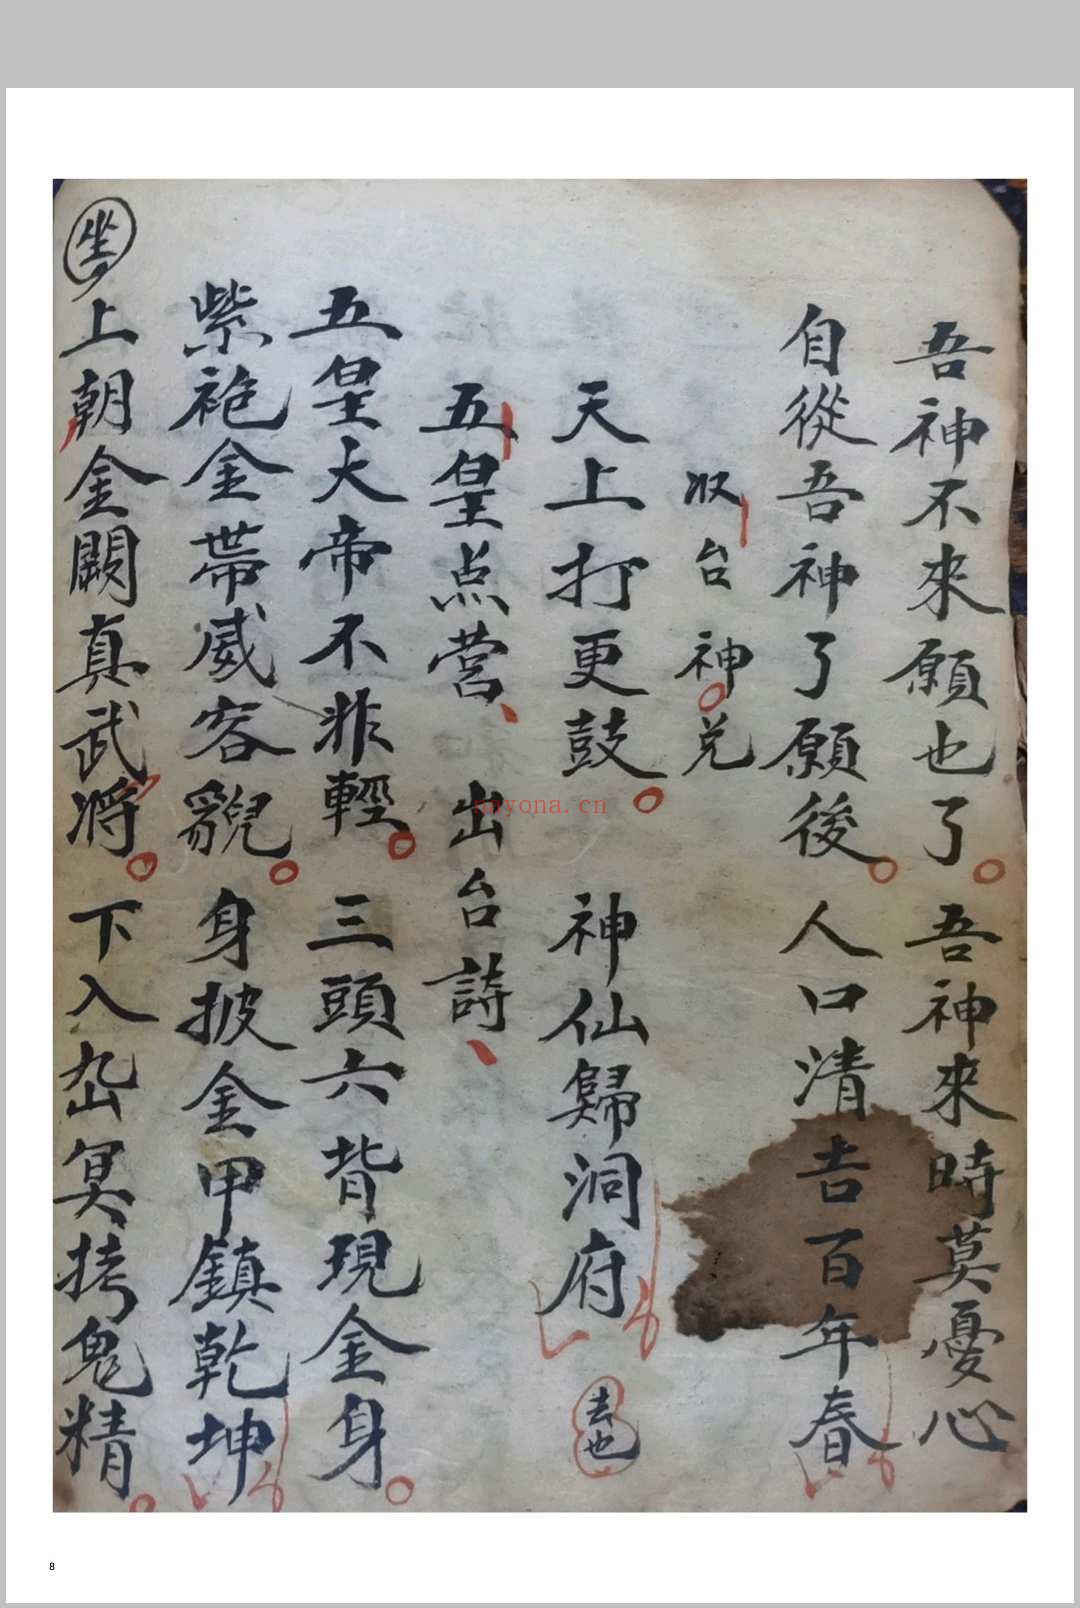 吾神不來願也了。吾神來時莫憂心
自從吾神了願後。人口清吉百年春
収台神。兑
天上打更鼓。神仙歸洞府
去也
五皇点营、出台詩、
五皇大帝不非輕。三頭六背現金身。
紫袍金帶威容貎。身披金甲鎮乾坤
坐
上朝金闕真武将。下入冥拷鬼精。
nnyona.cn
8